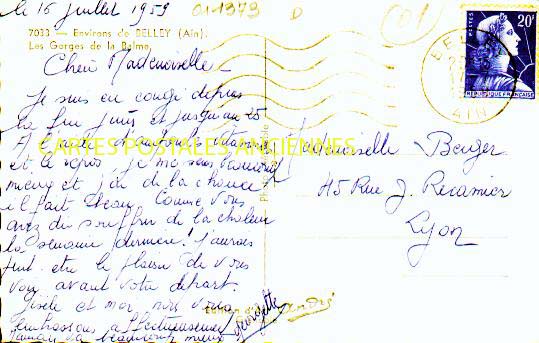 le 16 juillet 1959
011373
D
7033 — Environs de BELLEY (Ain).
Les Gorges de la Balme.
Chère Mademoiselle
Je suis en congé depuis
la fin juin et jusqu'au 25
A l'aide d'ampoules vitamines
et le repos je me sens vraiment
mieux et j'ai de la chance
il fait beau. Comme vous
avez dû souffrir de la chaleur
la semaine dernière ! j'aurais
peut être le plaisir de vous
voir avant votre départ.
Gisèle et moi, nous vous
embrassons affectueusement
Maman va beaucoup mieux
Georgette
CARTES POSTALES ANCIENNES
Mademoiselle Berger
45 Rue J. Récamier
Lyon
POSTES
20F
REPUBLIQUE FRANÇAISE
AIN